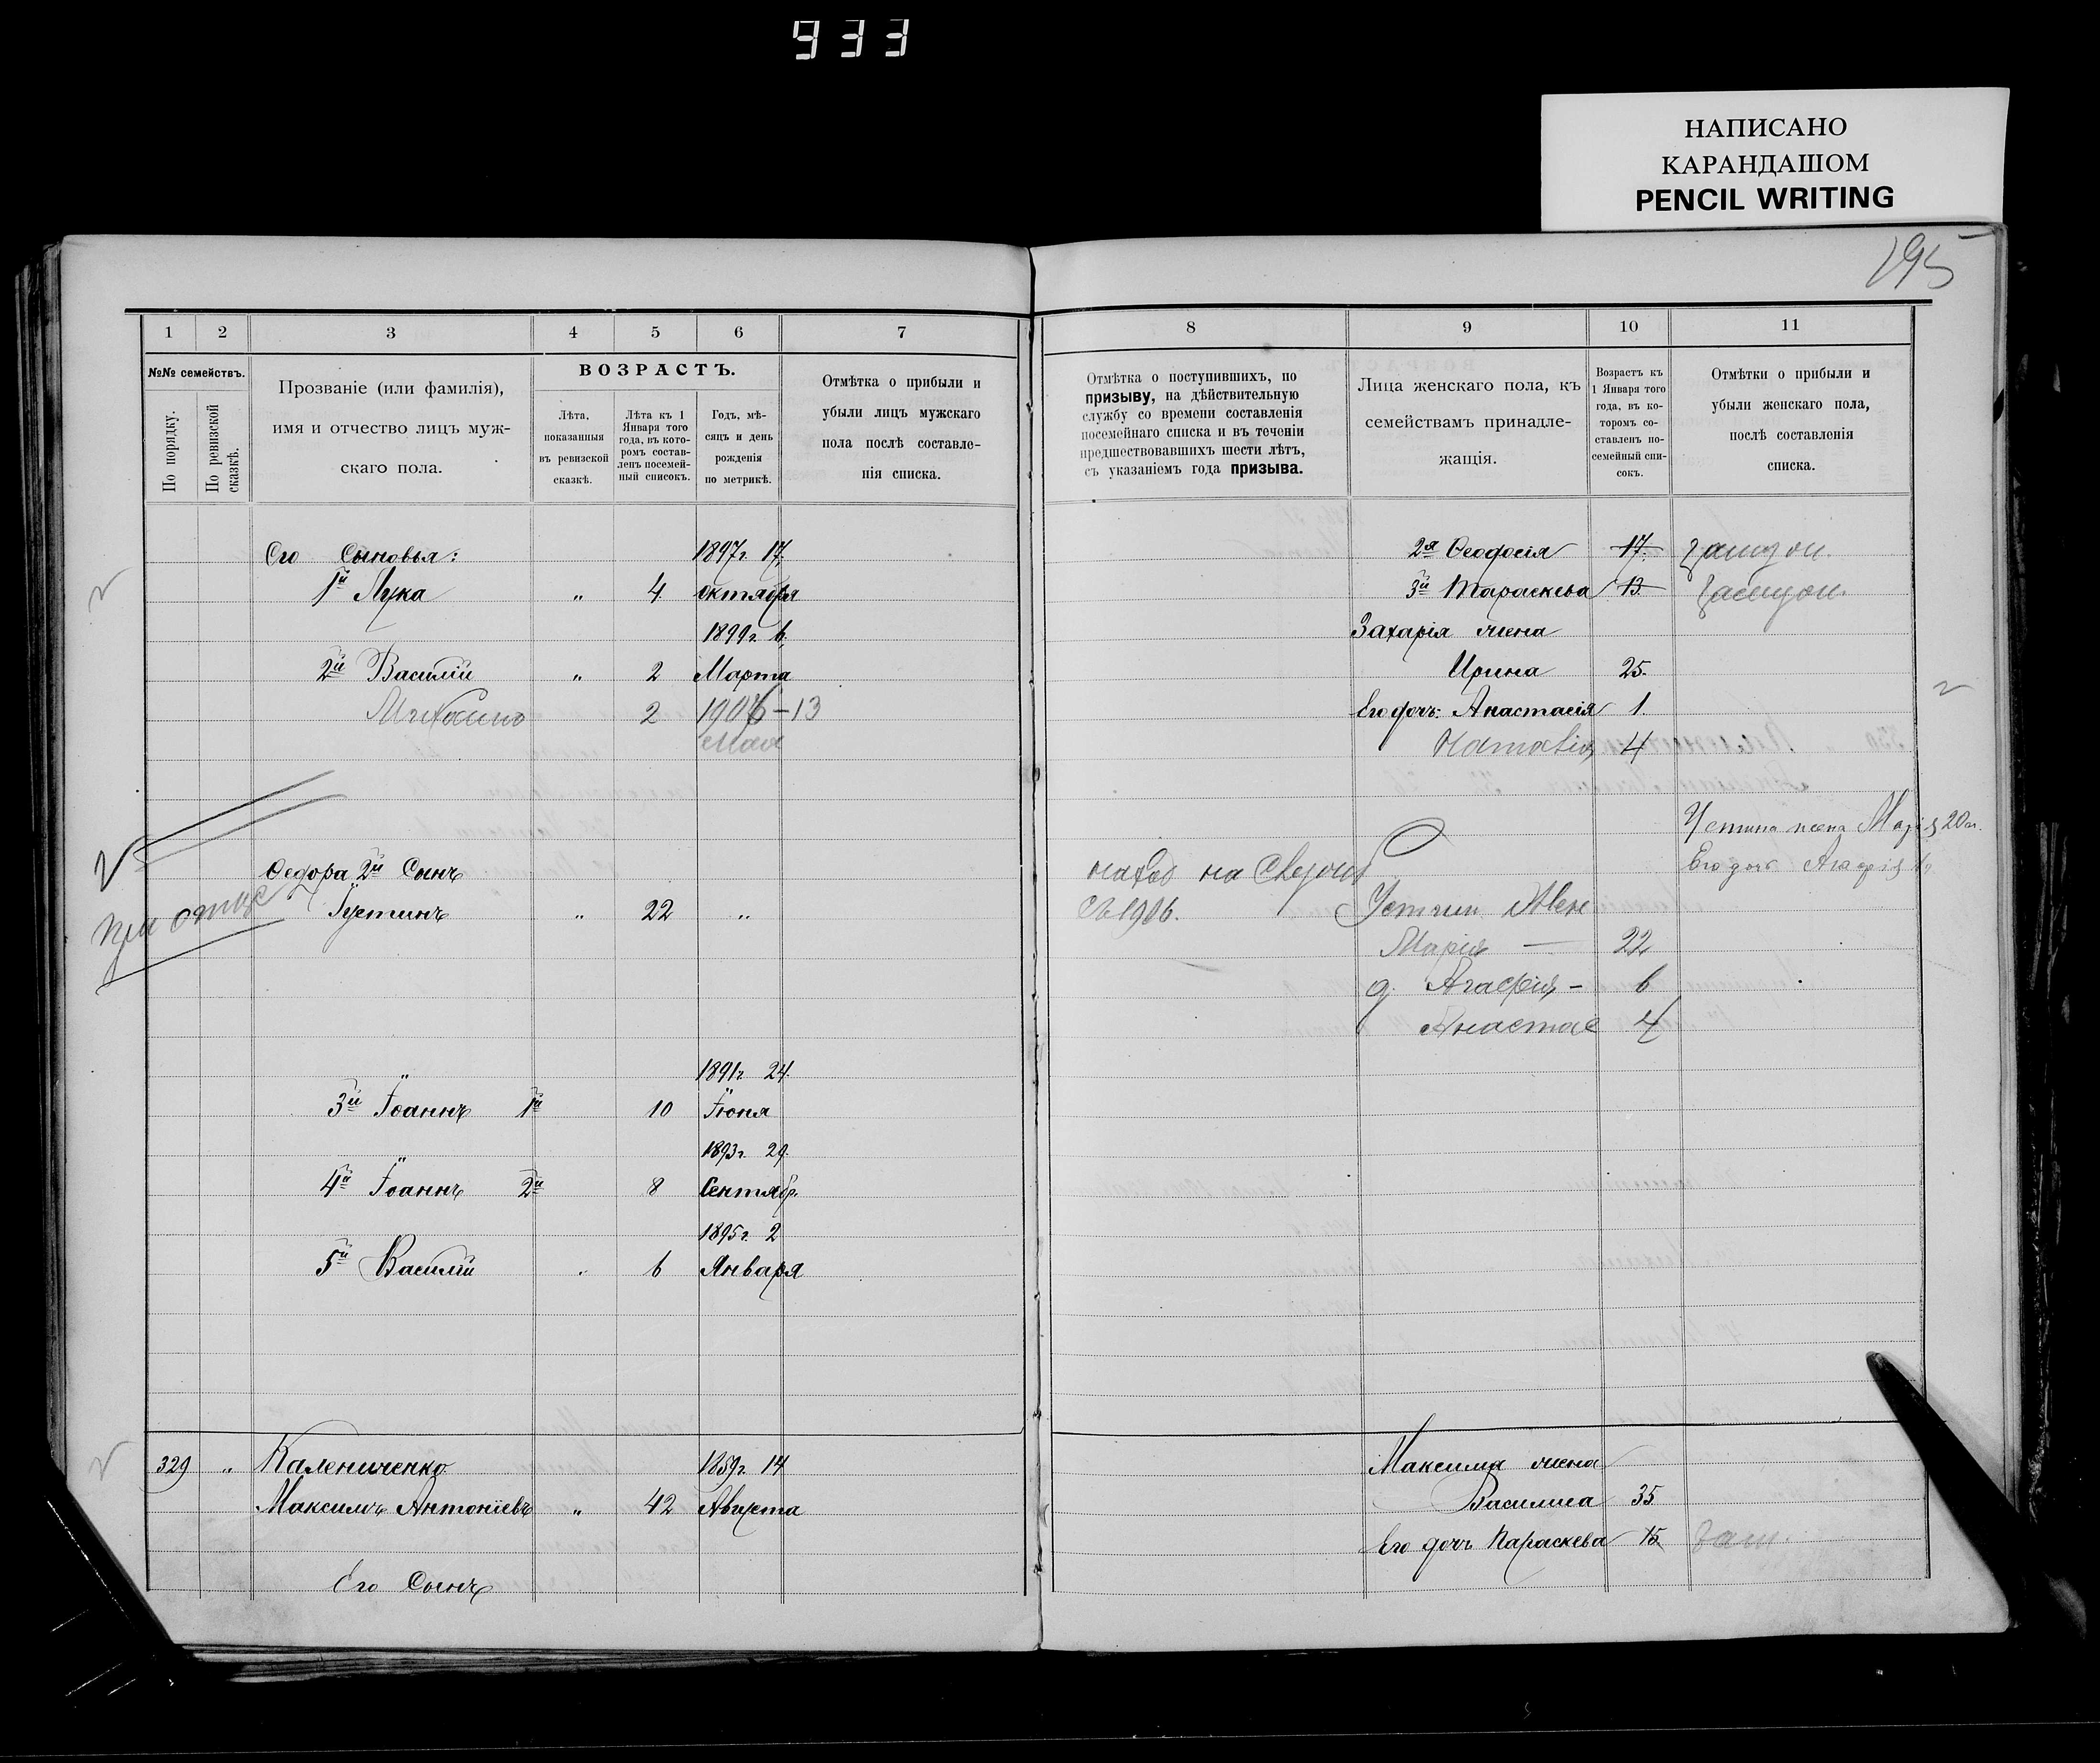 933
НАПИСАНО
КАРАНДАШОМ
PENCIL WRITING
195
1 2 3 4 5 6 7
№№ семействъ.
По порядку.
По ревизской сказкѣ.
Прозваніе (или фамилія),
имя и отчество лицъ муж-
скаго пола.
ВОЗРАСТЪ.
Лѣта,
показанныя
въ ревизской
сказкѣ.
Лѣта къ 1
Января того
года, въ кото-
ромъ состав-
ленъ посемей-
ный списокъ.
Годъ, мѣ-
сяцъ и день
рожденія
по метрикѣ.
Отмѣтка о прибыли и
убыли лицъ мужскаго
пола послѣ составле-
нія списка.
Его Сыновья: 1897г. 17.
1й Лука „ 4. октября
1899г. 6.
2й Василій „ 2 Марта
2 1906-13
Мая
Федора 2й Сынъ
при отце
Іустинъ „ 22 „
1891г. 24.
3й Іоаннъ 1й 10 Іюня
1893г. 29.
4й Іоаннъ 2й 8 Сентябр.
1895г. 2
5й Василій 6 Января
329 „ Калениченко 1859г. 14
Максимъ Антоніевъ „ 42 Августа
Его Сынъ
8 9 10 11
Отмѣтка о поступившихъ, по
призыву, на дѣйствительную
службу со времени составленія
посемейнаго списка и въ теченіи
предшествовавшихъ шести лѣтъ,
съ указаніемъ года призыва.
Лица женскаго пола, къ
семействамъ принадле-
жащія.
Возрастъ къ
1 Января того
года, въ ко-
торомъ со-
ставленъ по-
семейный спи-
сокъ.
Отмѣтки о прибыли и
убыли женскаго пола,
послѣ составленія
списка.
2я Феодосія 17. замуж.
3й Параскева 13. замуж.
Захарія жена
Ирина 25.
Его дочь: Анастасія 1.
4
Устина жена Марія 20 л.
Его дочь Агафія
на
1906. Устин жен
Марія — 22
д. Агафія - 6
Анастас 4
Максима жена
Василиса 35
Его дочь Параскева 15. зам.